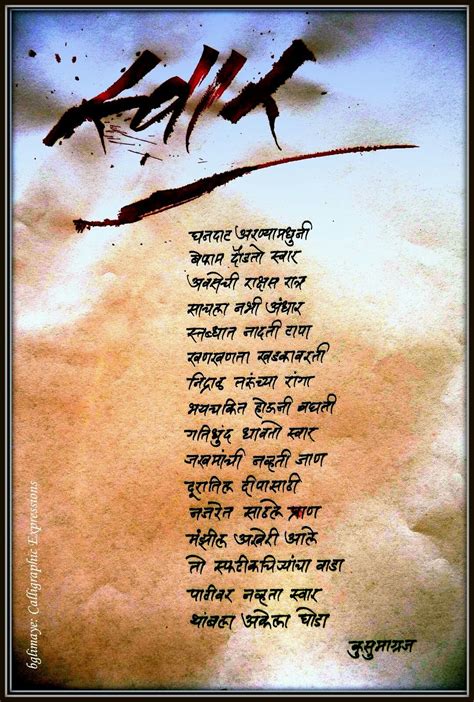 स्वार
घनदाट अरण्यामधुनी
बेफाम दौडतो स्वार
अवसेची राक्षस रात्र
साचला नभी अंधार
स्तब्धात नादती टापा
खणखणता खडकावरती
निद्राढ तरूंच्या रांगा
भयचकित होऊनी बघती
गतिधुंद धावतो स्वार
जखमांची नव्हती जाण
दूरातिल दीपासाठी
नजरेत साठले प्राण
मंझील अखेरी आले
तो स्फटीकचिऱ्यांचा वाडा
पाठीवर नव्हता स्वार
थांबला अकेला घोडा
कुसुमाग्रज
bglimaye: Calligraphic Expressions